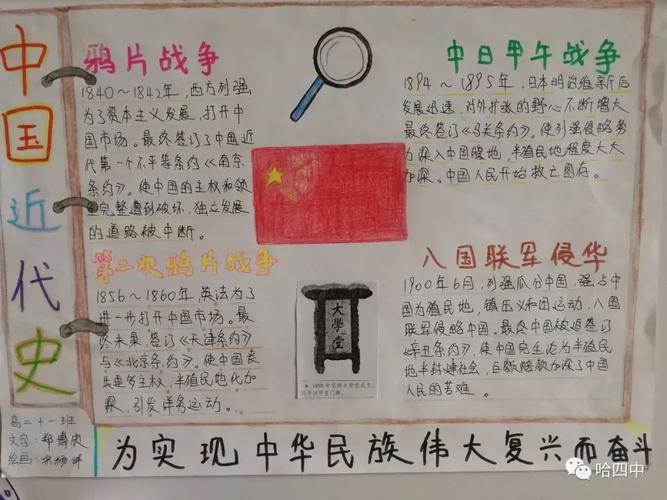 中国近代史
鸦片战争
1840～1842年,西方列强
为了资本主义发展,打开中
国市场。最终签订了中国近
代第一个不平等条约《南京
条约》。使中国的主权和领
土完整遭到破坏,独立发展
的道路被中断。
中日甲午战争
1894～1895年,日本明治维新后
发展迅速,对外扩张的野心不断增大
最终签订《马关条约》。使列强侵略势
力深入中国腹地,半殖民地程度大大
加深。中国人民开始救亡图存。
第二次鸦片战争
1856～1860年,英法为了
进一步打开中国市场。最
终未果,签订《天津条约》
与《北京条约》。使中国丧
失更多主权,半殖民地化加
深,引发洋务运动。
大學堂
八国联军侵华
1900年6月,列强瓜分中国,强占中
国为殖民地,镇压义和团运动,八国
联军侵略中国。最终中国被迫签订
《辛丑条约》,使中国完全沦为半殖民
地半封建社会,巨额赔款加深了中国
人民的苦难。
高二十一班
文字:
绘画:
为实现中华民族伟大复兴而奋斗
哈四中